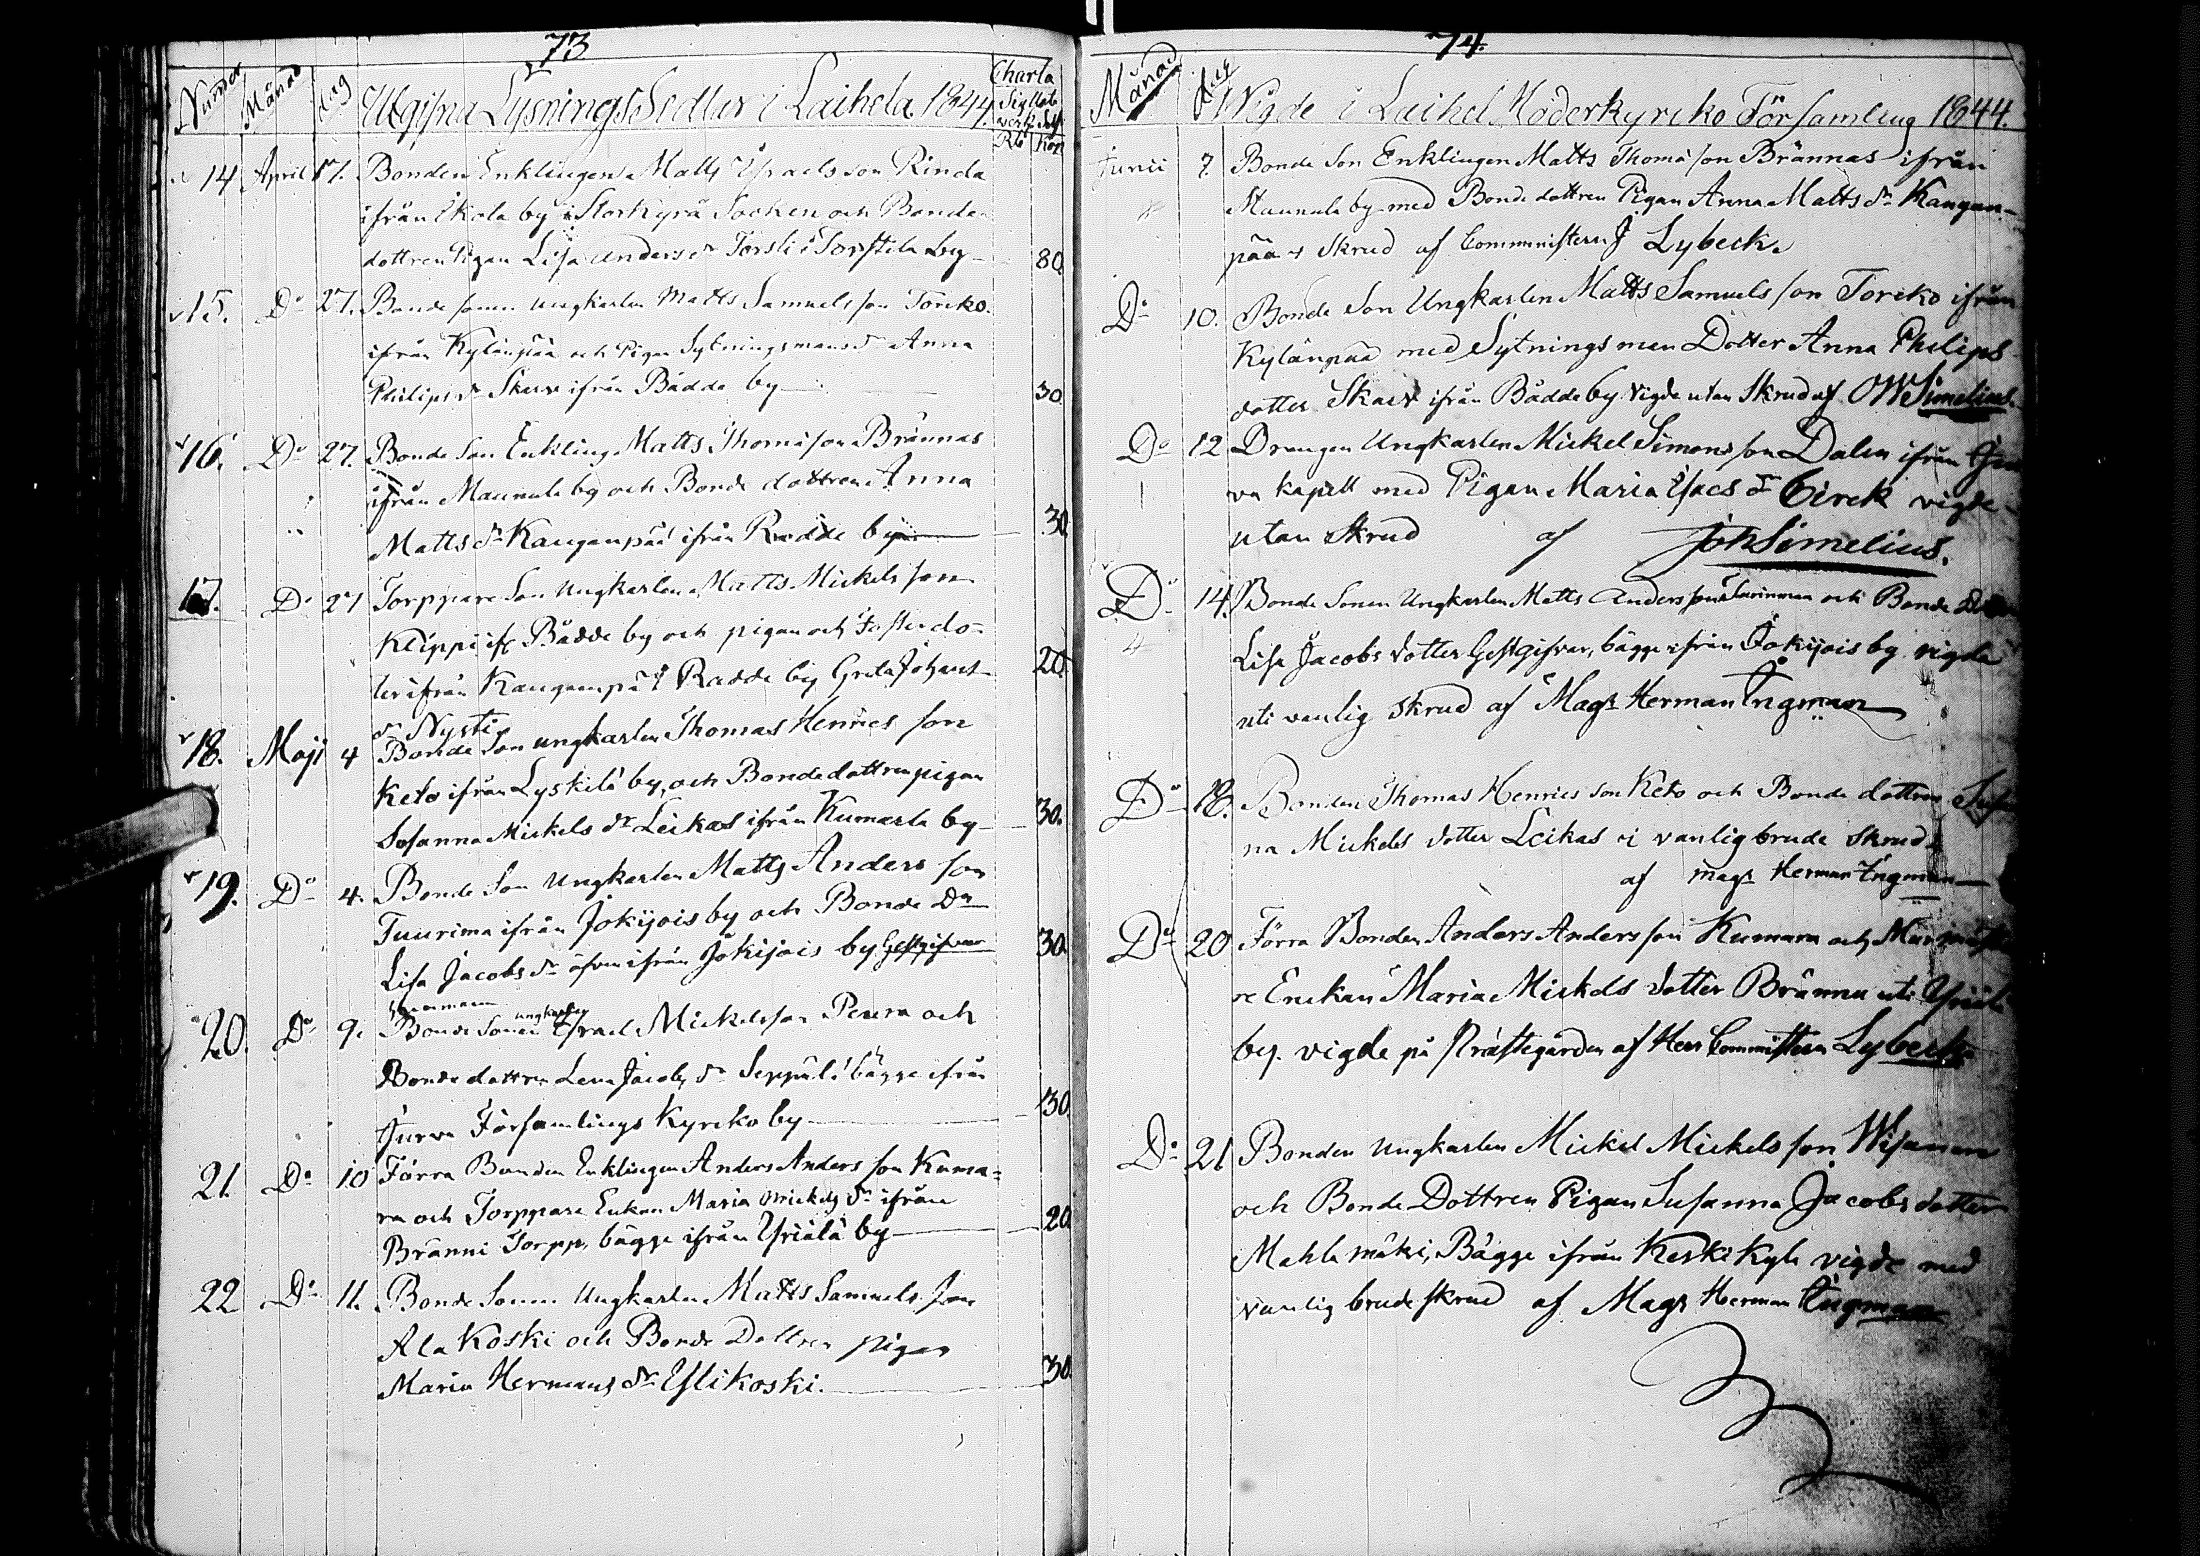 73
Numer Månad dag Utgifna Lysnings Sedlar i Laihela 1844. Charta Sigillatæ
Rb kop
14 April 17. Bonden Enklingen Matts Israels son Rinda
ifrån Ikola by i Storkyrå Socken och Bonde
dottren Pigan Lisa Anders dr Torsti i Torstila by 80
15. Do 27. Bonde sonen ungkarlen Matts Samuels son Torcko
ifrån Kylänpää och Pigan Sytningsmans dr Anna
Philips dr Skarv ifrån Rådde by 30
16. Do 27. Bonde Son Enkling Matts Thomæ son Brännas
ifrån Maunula by och Bonde dottren Anna
Matts dr Kanganpää ifrån Radde by 30
17. Do 27 Torppare Son Ungkarlen Matts Mickels son
Klippi ifr Rådde by och pigan och
ifrån Kanganpää Radde by Greta Johans
dr Nysti 20
18. Maji 4 Bonde Son ungkarlen Thomas Henrics son
Keto ifrån Lyskilä by, och Bonde dottren pigan
Sosanna Mickels dr Leikas ifrån Kumarla by 30.
19. Do 4. Bonde Son Ungkarlen Matts Anders son
Tuurima ifrån Jokijois by och Bonde Dr
Lisa Jacobs dr äfven ifrån Jokijois by Gestgifvar 30.
20. Do 9. Bonde Sonen ungkarlen Israel Mickelsson Peura och
Bonde dottren Lena Jacobs dr Seppälä bägge ifrån
Jurva Församlings Kyrcko by 30.
21. Do 10 Förra Bonden Enklingen Anders Anders son Kuma-
ra och Torppare Enkan Maria Mickels dr ifrån
Bränni Torpp, bägge ifrån Yriälä by 20
22 Do 11. Bonde Sonen Ungkarlen Matts Samuels Son
Ala Koski och Bonde Dottren pigan
Maria Hermans dr Ylikoski. 30.
74.
Månad dag Vigde i Laihela Moderkyrcko Församling 1844.
Junii 7. Bonde Son Enklingen Matts Thomæ son Brännas ifrån
Maunula by med Bonde dottren Pigan Anna Matts dr Kangan-
pää Skrud af Comministern J Lybeck.
Do 10. Bonde Son Ungkarlen Matts Samuels son Torcko ifrån
Kylänpää med Sytnings man Dotter Anna Philips
dotter Skarv ifrån Rådde by Vigde utan Skrud af OW Simelius.
Do 12 Drengen Ungkarlen Mickel Simons son Dalen ifrån Jur
va kapell med Pigan Maria Isacs dr Birck vigde
utan Skrud af Joh Simelius.
Do 14. Bonde Sonen Ungkarlen Matts Anders son och Bonde
Lisa Jacobs dotter Gestgifvar, bägge ifrån Jokijois by vigde
uti vanlig skrud af Magr Herman Ingman
Do 18. Bonden Thomas Henrics son Keto och Bonde dottren
na Mickels dotter Leikas i vanlig brude skrud
af magr Herman Ingman
Do 20 Förra Bonden Anders Anders son Kumara och
re Enckan Maria Mickels dotter Bränna uti Yriälä
by. vigde på Prästegården af Herr Comministern Lybeck
Do 21 Bonden Ungkarlen Mickel Mickels son Wisanen
och Bonde Dottren Pigan Susanna Jacobs dotter
Mahla mäki, Bägge ifrån Keski Kylä vigde med
vanlig brude skrud af Magr Herman Ingman